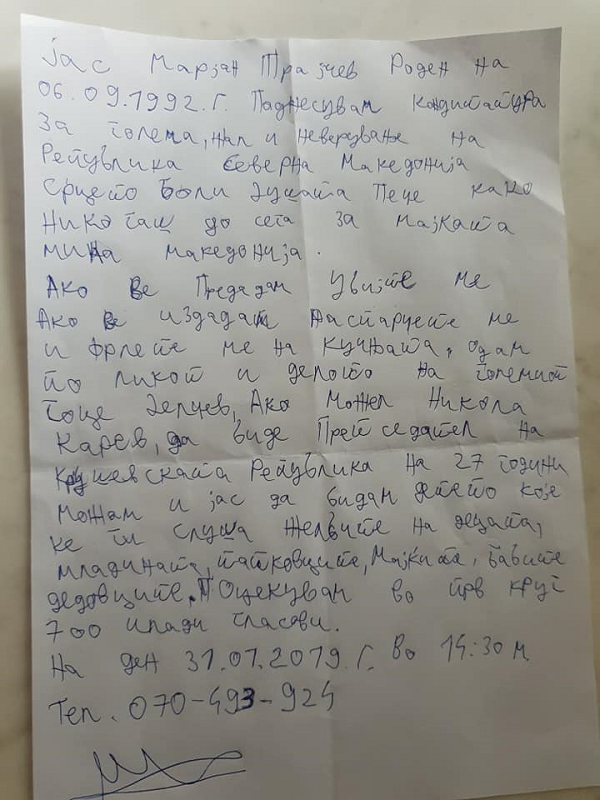 Јас Марјан Трајчев Роден на
06.09.1992.г. Поднесувам кандидатура
За голема, нап и неверување на
Република Северна Македонија
Срцето Боли Душата Пече како
Никогаш до сега за Мајката
мила македонија.
Ако ве Предадам убијте ме
Ако ве издадам Растарчете ме
и фрлете ме на кучињата, одам
по ликот и делото на големиот
Гоце Делчев, Ако Можел Никола
Карев, да биде Претседател на
Крушевската Република на 27 години
можам и јас да бидам детето кое
ке ги слуша желбите на децата,
младината, татковците, Мајките, бабите
дедовците. Оцекувам во прв круг
700 илади гласови.
На ден 31.01.2019.г. во 14:30 м
Тел. 070-493-924